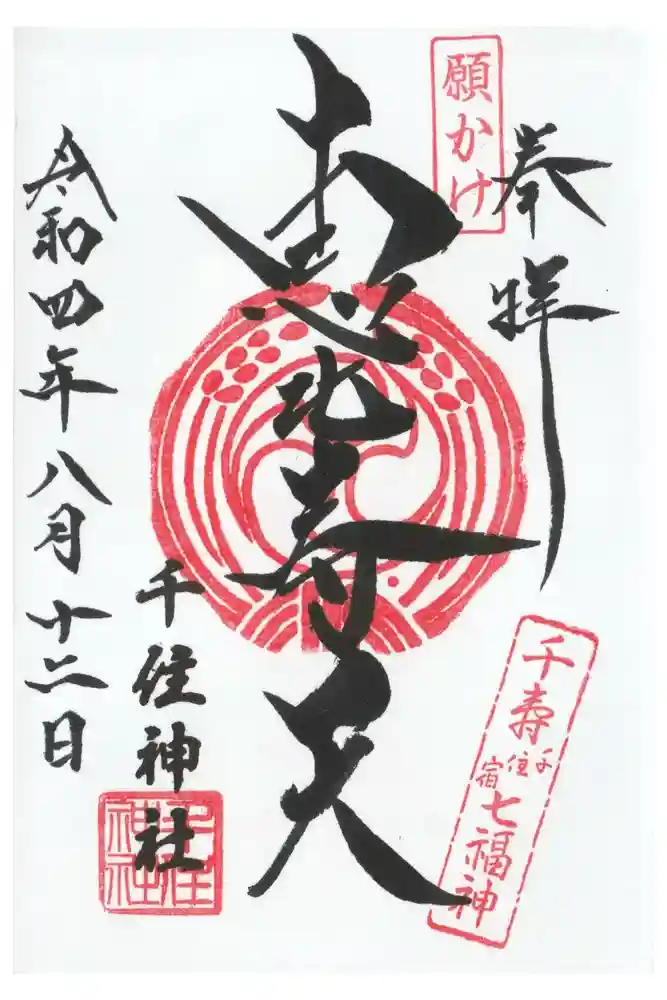 願かけ
奉拝
恵比寿天
千住神社
令和四年八月十二日
千寿
千住宿
七福神
千住神社